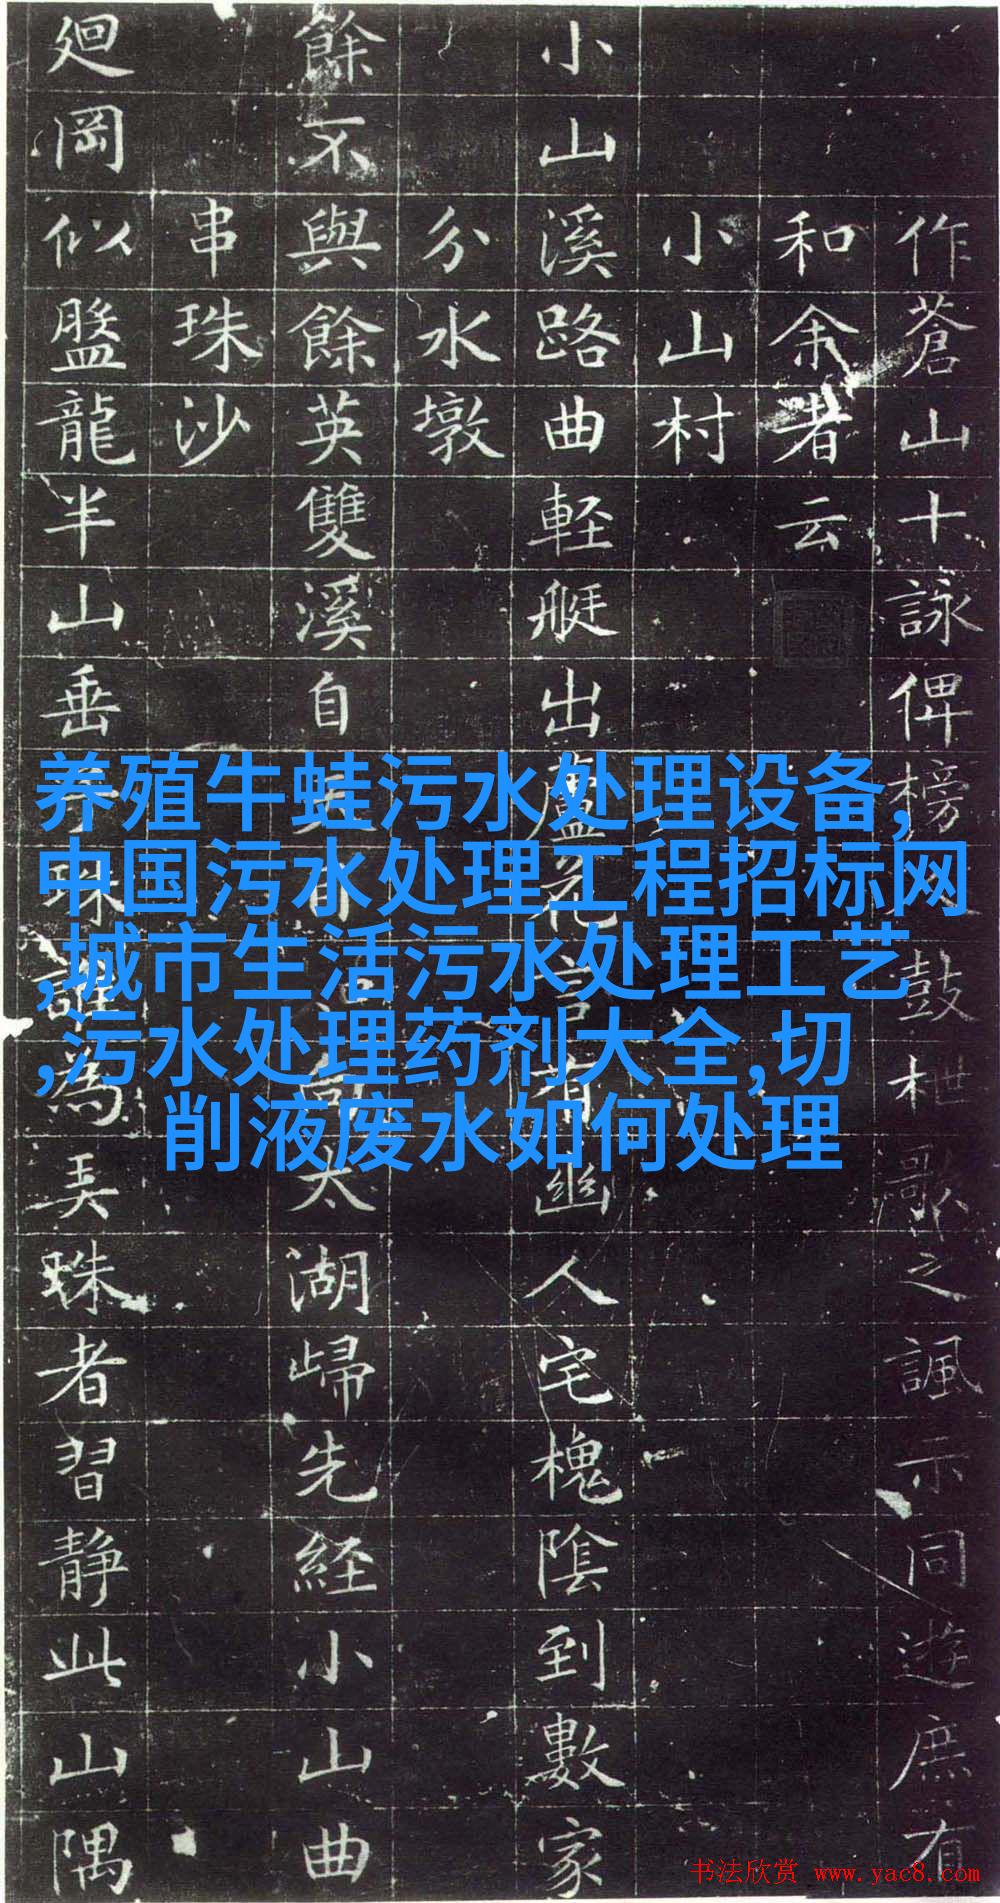 作蒼山十詠俾榜鼓枻歌之諷示同遊庶有
和余者云
小山村
小山溪路曲軽艇出蘆花言有幽人宅槐陰到數家
分水墩
餘不與餘英雙溪自向太湖歸先経小山曲
串珠沙
廻岡似盤龍半山垂珠誰為弄珠者習静此山隅
养殖牛蛙污水处理设备,
中国污水处理工程招标网
,城市生活污水处理工艺
,污水处理药剂大全,切
削液废水如何处理
书法欣赏 www.yac8.com